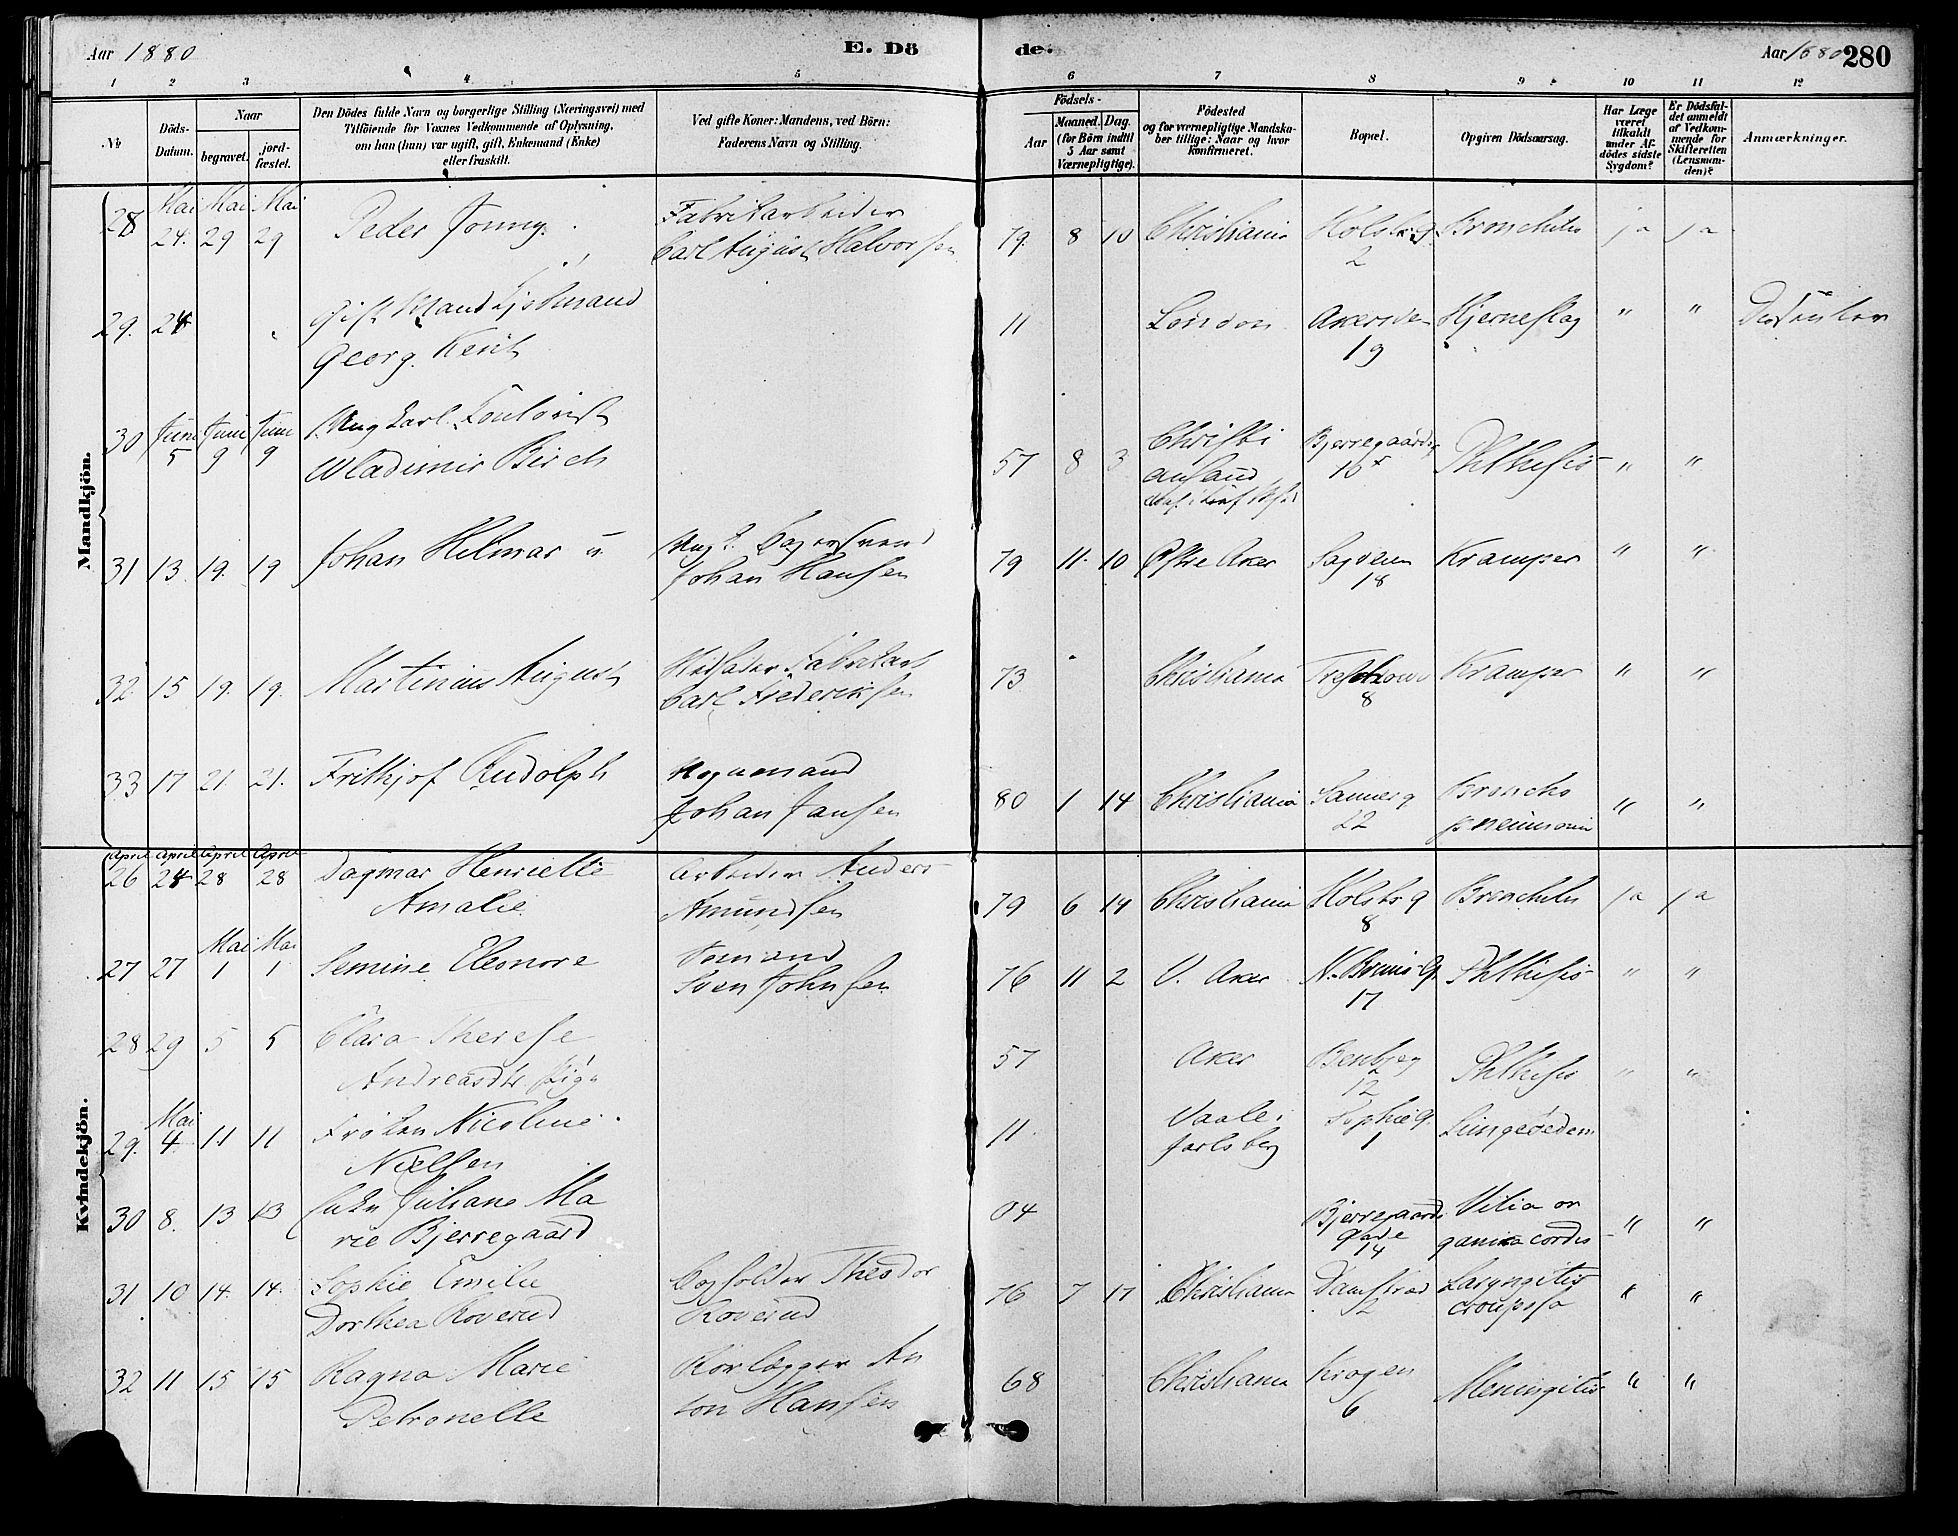 Aar 1880
E. Dö
de.
Aar 1880
280
1 2 3 4 5 6 7 8 9 10 11 12
No
Döds-
Datum.
Naar
begravet.
jord-
fæstet.
Den Dödes fulde Navn og borgerlige Stilling (Næringsvei) med
Tilföiende for Voxnes Vedkommende af Oplysning,
om han (hun) var ugift, gift, Enkemand (Enke)
eller fraskilt.
Ved gifte Koner: Mandens, ved Börn:
Faderens Navn og Stilling.
Födsels-
Aar
Maaned. Dag.
(for Börn indtil
5 Aar samt
Værnepligtige).
Födested
og for værnepligtige Mandska-
ber tillige: Naar og hvor
konfirmeret.
Bopæl.
Opgiven Dödsaarsag.
Har Læge
været
tilkaldt
under Af-
dödes sidste
Sygdom?
Er Dödsfal-
det anmeldt
af Vedkom-
mende for
Skifteretten
(Lensman-
den)?
Anmærkninger.
Mandkjön.
Mai Mai Mai
28 24. 29 29 Peder Jonny. Fabrikarbeider
Carl August Halvorsen 79. 8 10 Christiania Holstsg. 2 Bronchitis ja ja
29. 24 Gift Mand
Georg Kent 11 London Akersve 19 Hjerneslag " " Dissenter
Juni Juni Juni
30 5 9 9 Ung Karl
Wladimir Birch 57 8 3 Christi
ansand Bjerregaardsg 16 Phthisis " "
31 13. 19. 19 Johan Hilmar u.
Johan Hansen 79 11. 10 Østre Aker Sagveien 18 Kramper " "
32. 15 19. 19. Martinius August
Carl Frederiksen 73 Christiania Treschows 8 Kramper " "
33 17 21. 21. Frithjof Rudolph Vognmand
Johan Jansen 80 1 14 Christiania Sannerg 22 Broncho
pneumoni " "
Kvindekjön.
April April April April
26 24 28 28 Dagmar Henriette
Amalie Arbeider Anders
Amundsen 79 6 14 Christiania Holstsg 8 Bronchitis ja ja
Mai Mai
27 27 1 1 Semine Eleonore Sømand
Sven Johnsen 76 11 2 V. Aker N. Bruns G. 17 Phthisis " "
28 29 5 5 Clara Therese
Andreasdtr Pige 57 Aker 12 Phthisis " "
Mai
29. 4. 11 11 Frøken Nicoline
Nielsen 11 Vaale i
Jarlsberg Sophieg. 1 Lungeødem
30 8. 13 13 Enke Juliane Ma
rie Bjerregaard 04 Bjerregaards
gade 14 Vitia or
ganica cordis " "
31 10 14. 14. Sophie Emilie
Dorthea Roverud Bogholder Theodor
Roverud 76 7 17 Christiania Damstræd 2 Laryngitis
crouposa " "
32 11 15 15 Ragna Marie
Petronelle Rørlægger An
ton Hansen 68 Christiania Krogen 6 Meningitis " "